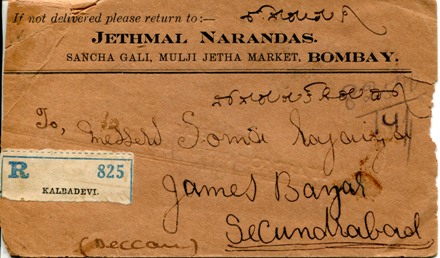 If not delivered please return to:—
JETHMAL NARANDAS.
SANCHA GALI, MULJI JETHA MARKET, BOMBAY.
To,
Messers Somi
R 825
KALBADEVI.
James Bazar
Secundrabad
(Deccan)